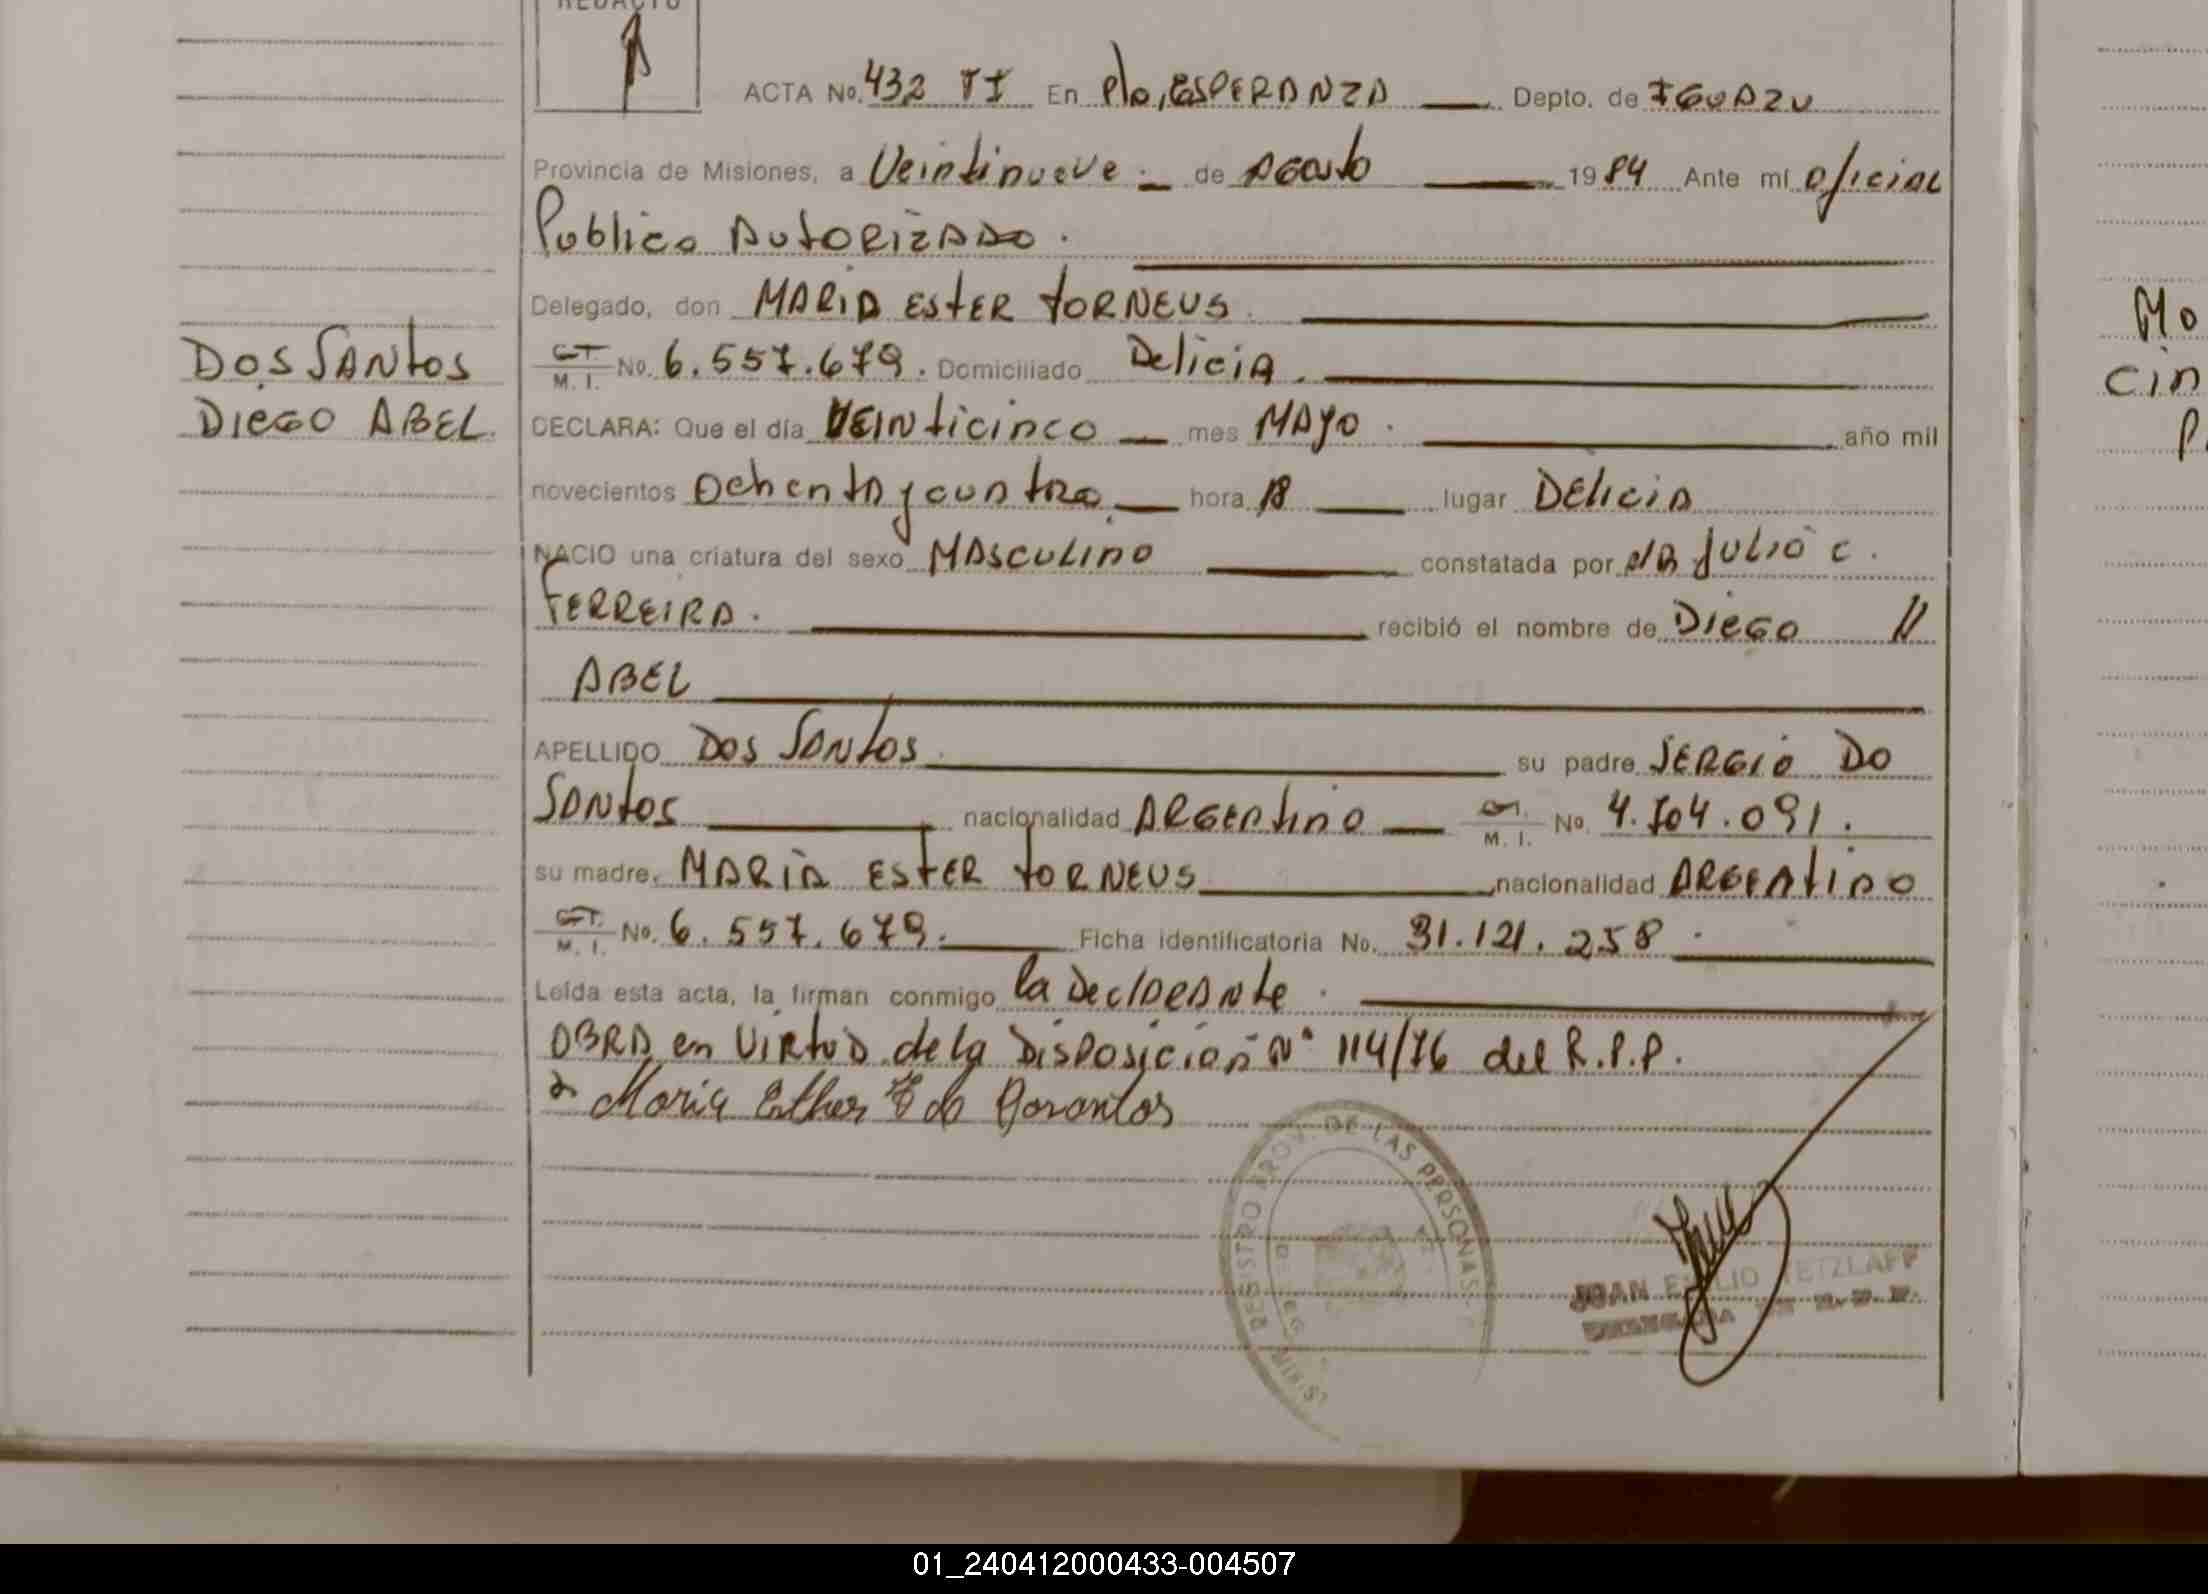 REDACTO
ACTA No. 432 TI En Pto, ESPERANZA Depto. de IGUAZU
Provincia de Misiones, a Veintinueve de Agosto 1984 Ante mí oficial
Publico AUTORIZADO.
Delegado, don MARIA ESTER TORNEUS
M. I. No. 6.557.679. Domiciliado Delicia.
DOS SANTOS
DIEGO ABEL.
DECLARA: Que el día VEINTICINCO mes MAYO. año mil
novecientos Ochenta y cuatro hora 18 lugar DELICIA
NACIO una criatura del sexo MASCULINO constatada por JULIO C.
FERREIRA. recibió el nombre de DIEGO //
ABEL
APELLIDO DOS SANTOS su padre SERGIO DO
SANTOS nacionalidad ARGENTINO M. I. No. 4.704.091.
su madre, MARIA ESTER TORNEUS nacionalidad ARGENTINO
M. I. No. 6.557.679. Ficha identificatoria No. 31.121.258.
Leída esta acta, la firman conmigo la DeclARANte.
OBRA en VIRTUD de la DISPOSICION Nº 114/76 del R.P.P.
Maria Esther de
REGISTRO PROV. DE LAS PERSONAS
JUAN EMILIO TETZLAFF
Mo
cin
01_240412000433-004507